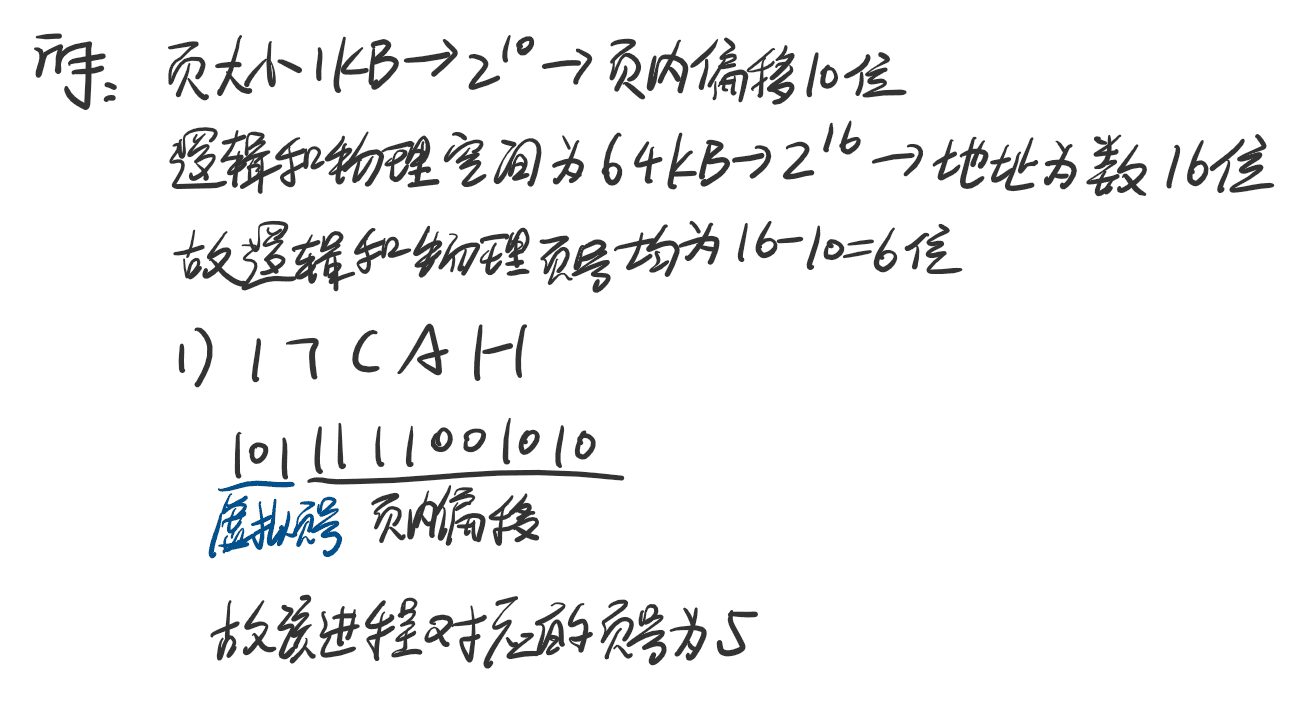 解: 页大小1KB→2^10→页内偏移10位
逻辑和物理空间为64KB→2^16→地址为数16位
故逻辑和物理页号均为16-10=6位
1) 17CAH
1011111001010
虚拟页号 页内偏移
故该进程对应的页号为5